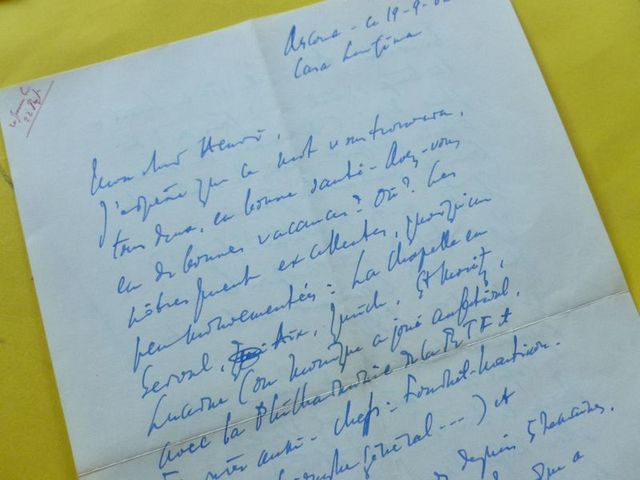 Ascona - le 19-9-
Casa
Mon cher Henri,
J'espère que ce mot vous trouvera,
tous deux, en bonne santé - Avez-vous
eu de bonnes vacances? Où? Les
nôtres furent excellentes, quoiqu'un
peu mouvementées: La Chapelle en
Serval, Aix, Zürich, St Moritz,
Lucerne (où Monique a joué au festival,
avec la Philharmonie de la RTF
chefs:
général...) et
depuis 3 semaines.
que a